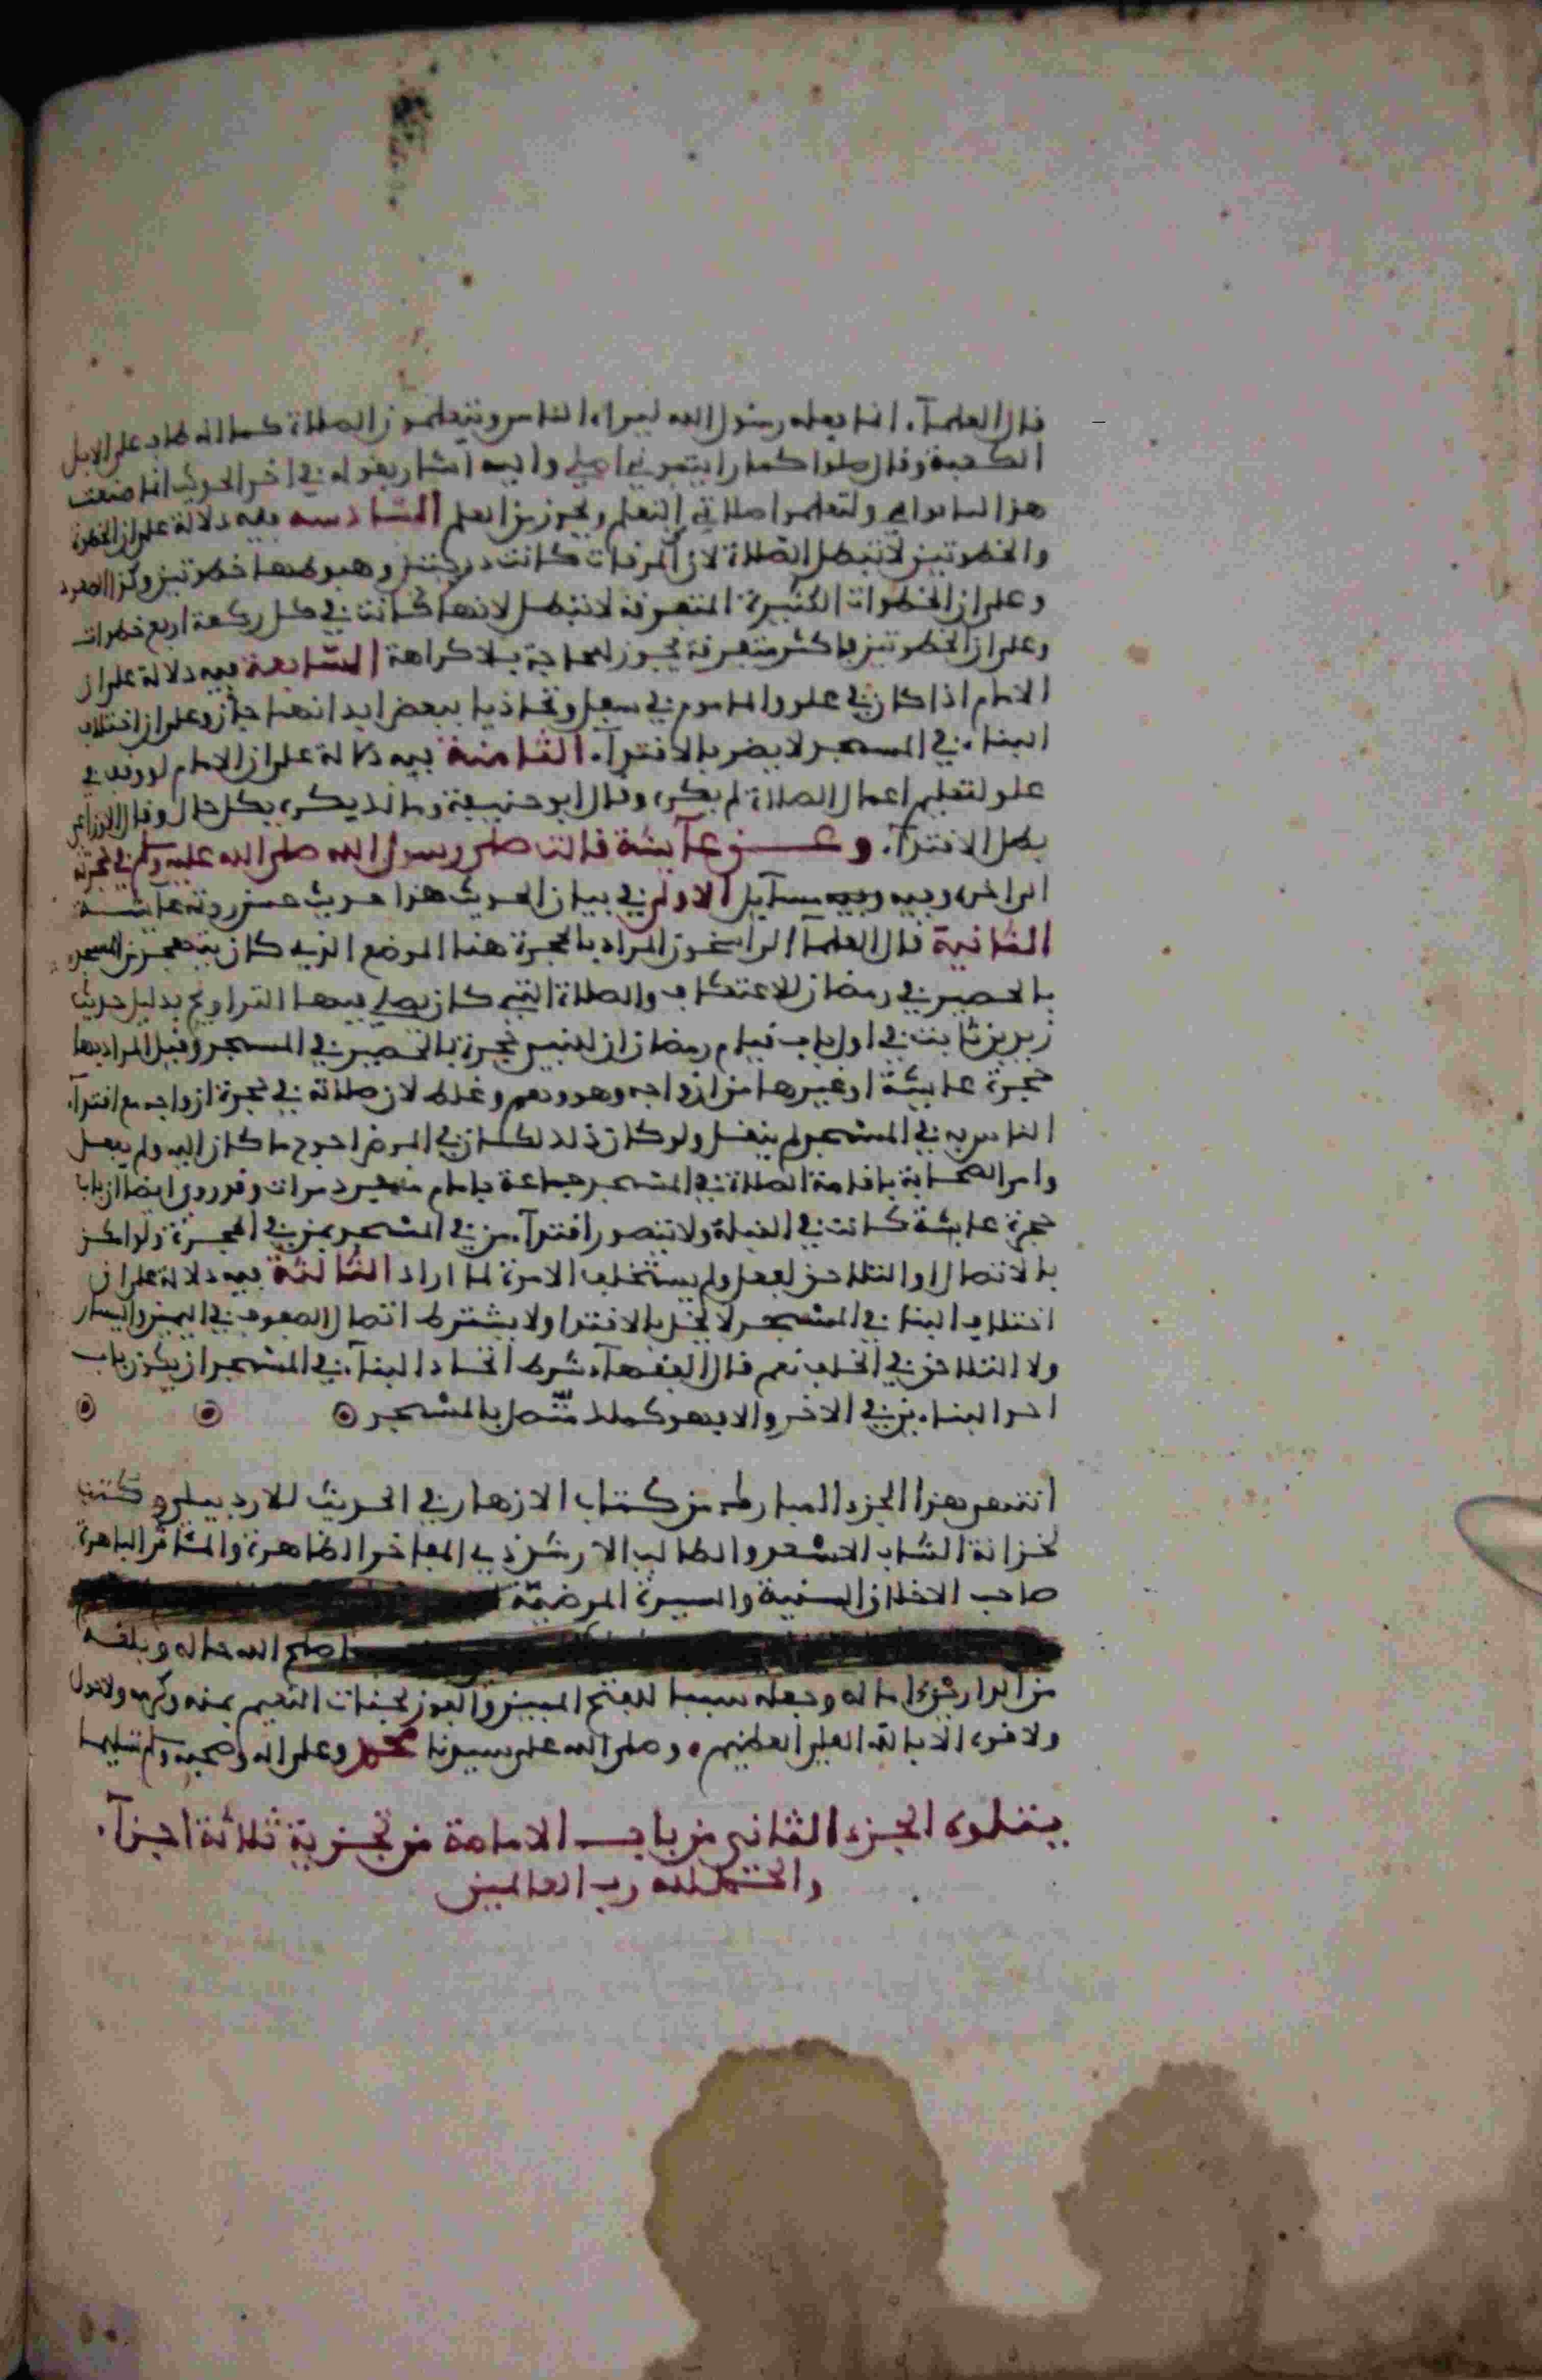 قال العلمآء انما فعله رسول الله ليراه الناس ويتعلمون الصلاة كما انه طاف على الابل
الكعبة وقال صلوا كما رايتموني اصلي واليه اشار بقوله في اخر الحديث انما صنعت
هذا لتاتموا بي ولتعلموا صلاتي التعلم ويجوز من العلم السادسه فيه دلالة على ان الخطوة
والخطوتين لا تبطل الصلاة لان المرقات كانت درجتين وهبوطها خطوتين وكذا الصعود
وعلى ان الخطوات الكثيرة المتفرقة لا تبطل لانها كانت في كل ركعة اربع خطوات
وعلى ان الخطوتين فاكثر متفرقة يجوز للحاجة بلا كراهة السابعة فيه دلالة على ان
الامام اذا كان في علو والماموم في سفل وتحاذيا ببعض ابدانهما جاز وعلى ان اختلاف
البناء في المسجد لا يضر بالاقتدآء الثامنة فيه دلالة على ان الامام لو وقف في
علو لتعليم اعمال الصلاة لم يكره وقال ابو حنيفة ومالك يكره بكل حال وقال الاوزاعي
بطل الاقتدآء وعن عآيشة قالت صلى رسول الله صلى الله عليه وسلم في حجرته
الى اخره وفيه وفيه مسآيل الاولى في بيان الحديث هذا حديث حسن روته عائشة
الثانية قال العلمآ الراسخون المراد بالحجرة هنا الموضع الذي كان يتحجر من المسجد
بالحصير في رمضان للاعتكاف والصلاة التي كان يصلي فيها التراويح بدليل حديث
زيد بن ثابت في اول باب قيام رمضان ان النبي حجرة بالحصير في المسجد وقيل المراد بها
حجرة عايشة او غيرها من ازواجه وهو وهم وغلط لان صلاته في حجرة ازواجه مع اقتدآء
الناس به في المسجد لم ينقل ولو كان ذلك لكان في المرض احوج ما كان اليه ولم يفعل
وامر الصحابة باقامة الصلاة في المسجد جماعة بامام منفرد مرات وقد روي ايضا ان باب
حجرة عايشة كانت في القبلة ولا يتصور اقتدآء من في المسجد بمن في الحجرة ولو امكن
بالاتصال او التلاحق لفعل ولم يستخلف الامرة لما اراد الثالثة فيه دلالة على ان
اختلاف البنا في المسجد لا يخل بالاقتدا ولا يشترط اتصال الصفوف في اليمين واليسار
ولا التلاحق في الخلف نعم قال الفقهآء شرط اتحاد البنآء في المسجد ان يكون باب
احد البنآءين في الاخر والا فهو كملك متصل بالمسجد
انتهى هذا الجزء المبارك من كتاب الازهار في الحديث للاردبيلي وكتب
لخزانة الشاب الاسعد والطالب الارشد ذي المفاخر الظاهرة والمئاثر الباهرة
صاحب الاخلاق السنية والسيرة المرضية
اصلح الله حاله وبلغه
من الدارين اماله وجعله سببا للفتح المبين والفوز بجنات النعيم بمنه وكرمه ولا حول
ولا قوة الا بالله العلي العظيم وصلى الله على سيدنا محمد وعلى اله وصحبه وسلم تسليما
يتلوه الجزء الثاني من باب الامامة من تجزية ثلاثة اجزآء
والحمد لله رب العالمين